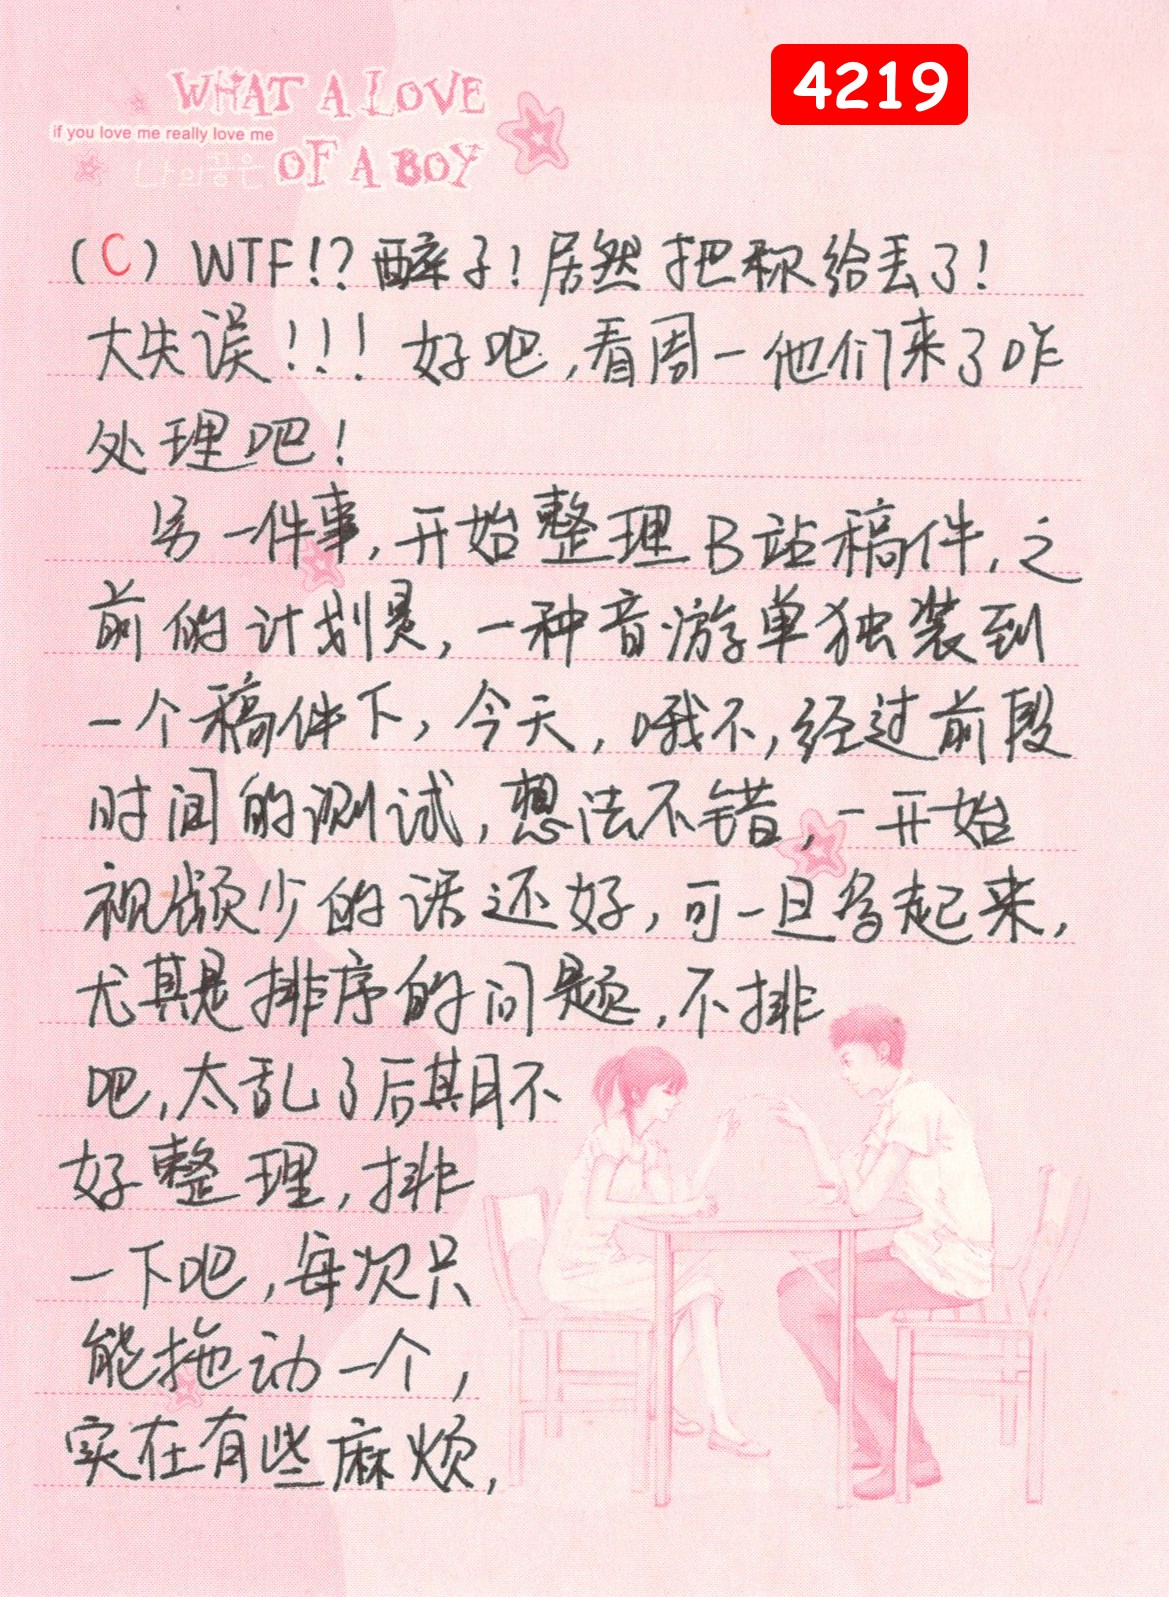 4219
WHAT A LOVE
if you love me really love me
OF A BOY
(C) WTF!?醉了!居然把称给丢了!
大失误!!!好吧,看周一他们来了咋
处理吧!
另一件事,开始整理B站稿件,之
前的计划是,一种音游单独装到
一个稿件下,今天,哦不,经过前段
时间的测试,想法不错,一开始
视频少的话还好,可一旦多起来,
尤其是排序的问题,不排
吧,太乱了后期不
好整理,排
一下吧,每次只
能拖动一个,
实在有些麻烦,